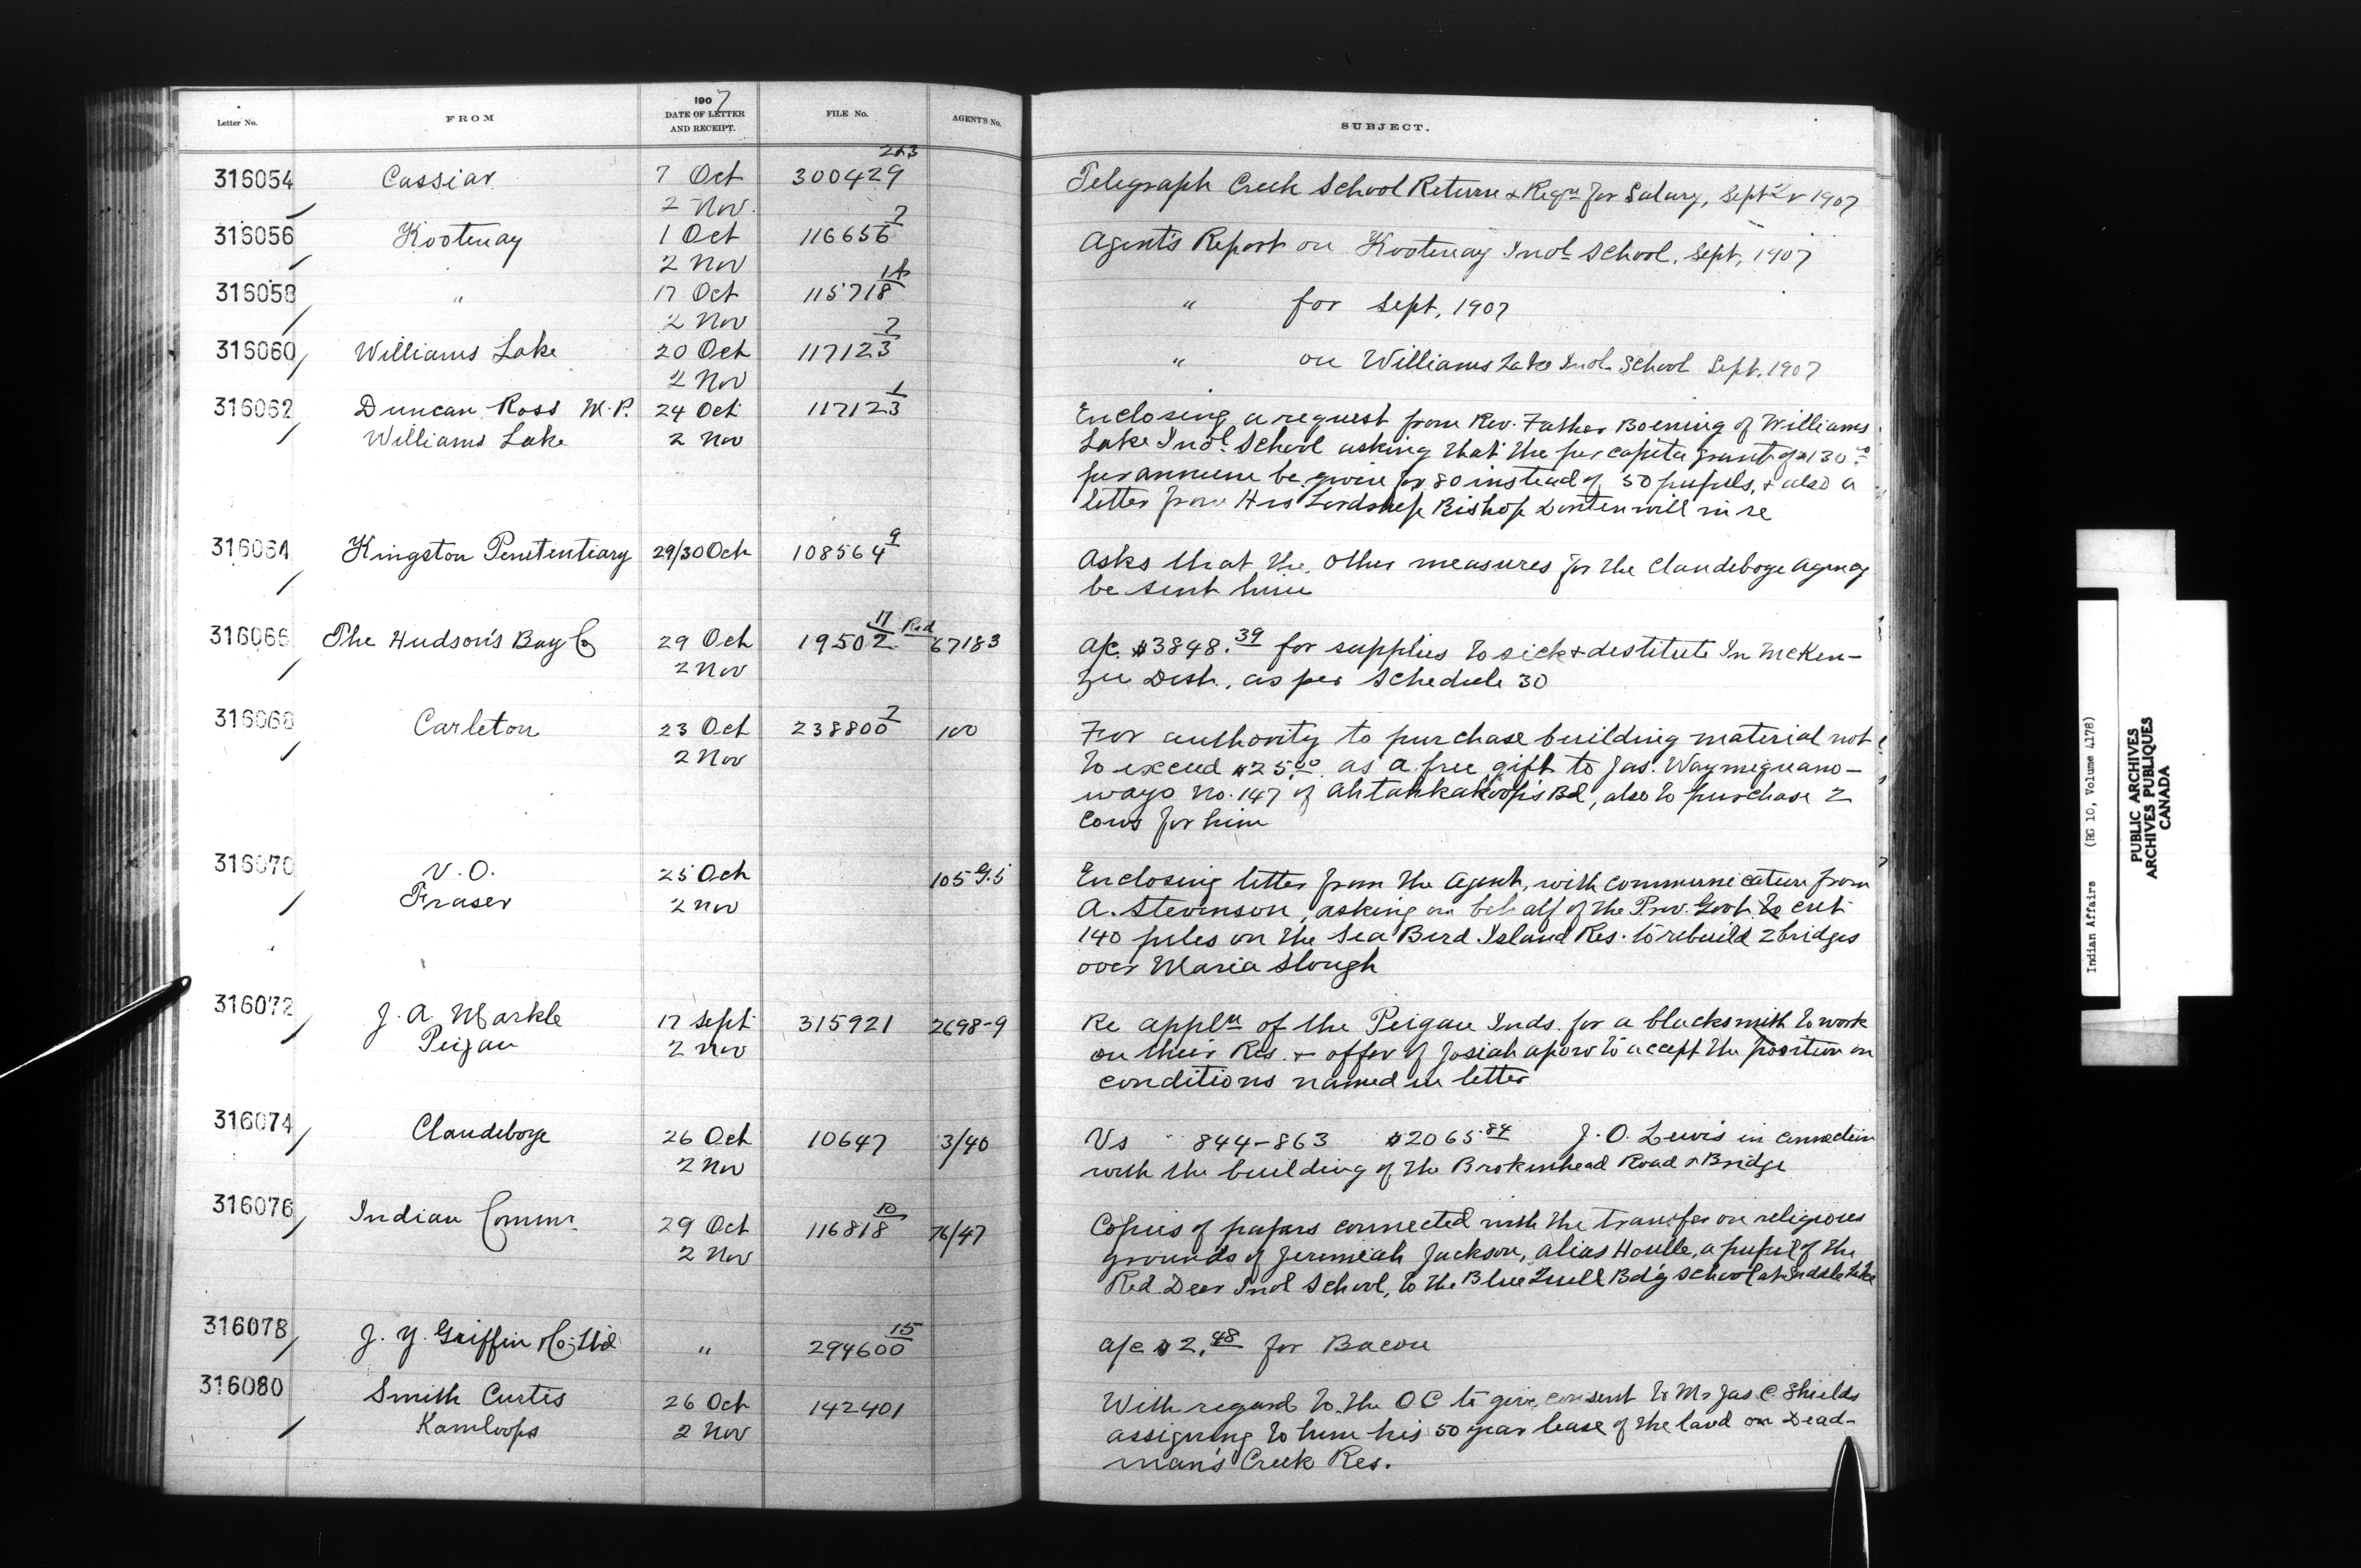 Letter No. FROM 1907 DATE OF LETTER AND RECEIPT. FILE No. AGENT'S No. SUBJECT.
316054 Cassiar 7 Oct 300429 2&3 Telegraph Creek School Return & Reqn for Salary, Septr 1907
2 Nov.
316056 Kootenay 1 Oct 116656 7 Agent's Report on Kootenay Indl School, Sept, 1907
2 Nov
316058 " 17 Oct 115718 " for Sept, 1907
2 Nov
316060 Williams Lake 20 Oct 117123 7 " on Williams Lake Indl School Sept. 1907
2 Nov
316062 Duncan Ross M.P. 24 Oct 117123 1 Enclosing a request from Rev. Father Boening of Williams
Williams Lake 2 Nov Lake Indl. School asking that the per capita grant of $130.00
per annum be given for 80 instead of 50 pupils, & also a
letter from His Lordship Bishop Dontenwill in re
316064 Kingston Penitentiary 29/30 Oct 108564 9 Asks that the other measures for the Clandeboye Agency
be sent him
316066 The Hudson's Bay Co 29 Oct 19502 17 Red 67183 a/c $3848.39 for supplies to sick & destitute In McKen-
2 Nov zie Dist., as per Schedule 30
316068 Carleton 23 Oct 238800 7 100 For authority to purchase building material not
2 Nov to exceed $25.00 as a free gift to Jas.
ways No. 147 of Ahtahkakoop's Bd, also to purchase 2
cows for him
316070 V.O. 25 Oct 105 G.5 Enclosing letter from the Agent, with communication from
Fraser 2 Nov A. Stevenson, asking on behalf of the Prov. Govt. to cut
140 piles on the Sea Bird Island Res. to rebuild 2 bridges
over Maria Slough
316072 J. A. Markle 17 Sept 315921 2698-9 Re appln of the Peigan Inds. for a blacksmith to work
Peigan 2 Nov on their Res. & offer of Josiah to accept the position on
conditions named in letter
316074 Clandeboye 26 Oct 10647 3/40 Vs 844-863 $2065.84 J. O. Lewis in connection
2 Nov with the building of the Brokenhead Road & Bridge
316076 Indian Commr. 29 Oct 116818 10 76/47 Copies of papers connected with the transfer on religious
2 Nov grounds of Jeremiah Jackson, alias Houlle, a pupil of the
Red Deer Indl School, to the Blue Quill Bd'g School at Saddle Lake
316078 J. Y. Griffin & Co. Ltd " 294600 15 a/c $2.48 for Bacon
316080 Smith Curtis 26 Oct 142401 With regard to the OC to give consent to Mr Jas. C. Shields
Kamloops 2 Nov assigning to him his 50 year lease of the land on Dead-
man's Creek Res.
Indian Affairs (RG 10, Volume 4178)
PUBLIC ARCHIVES
ARCHIVES PUBLIQUES
CANADA